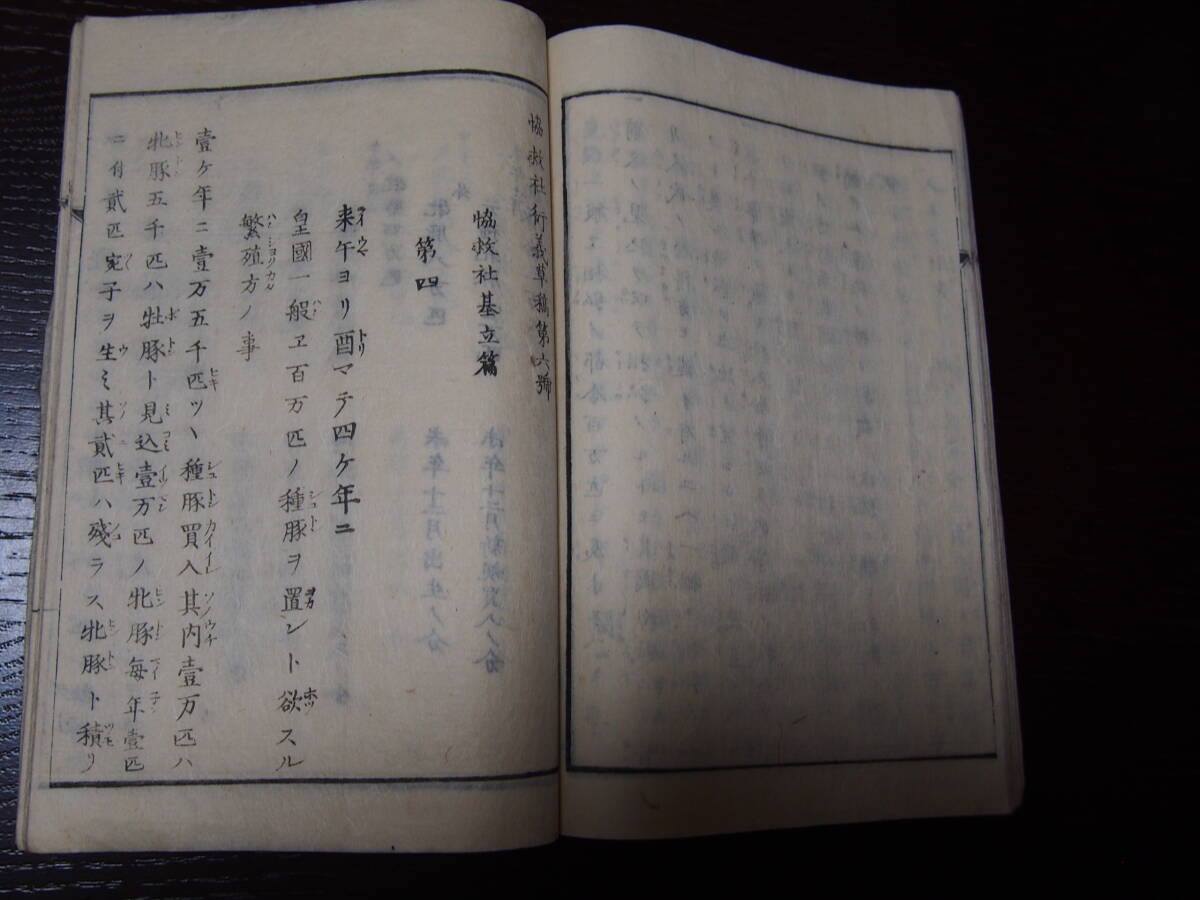 協救社衍義草稿第六號
協救社基立篇
第四
来午ヨリ酉マテ四ケ年ニ
皇國一般ヱ百万匹ノ種豚ヲ置ント欲スル
繁殖方ノ事
壹ケ年ニ壹万五千匹ツヽ種豚買入其内壹万匹ハ
牝豚五千匹ハ牡豚ト見込壹万匹ノ牝豚毎年壹匹
ニ付貳匹宛子ヲ生ミ其貳匹ハ殘ラス牝豚ト積リ